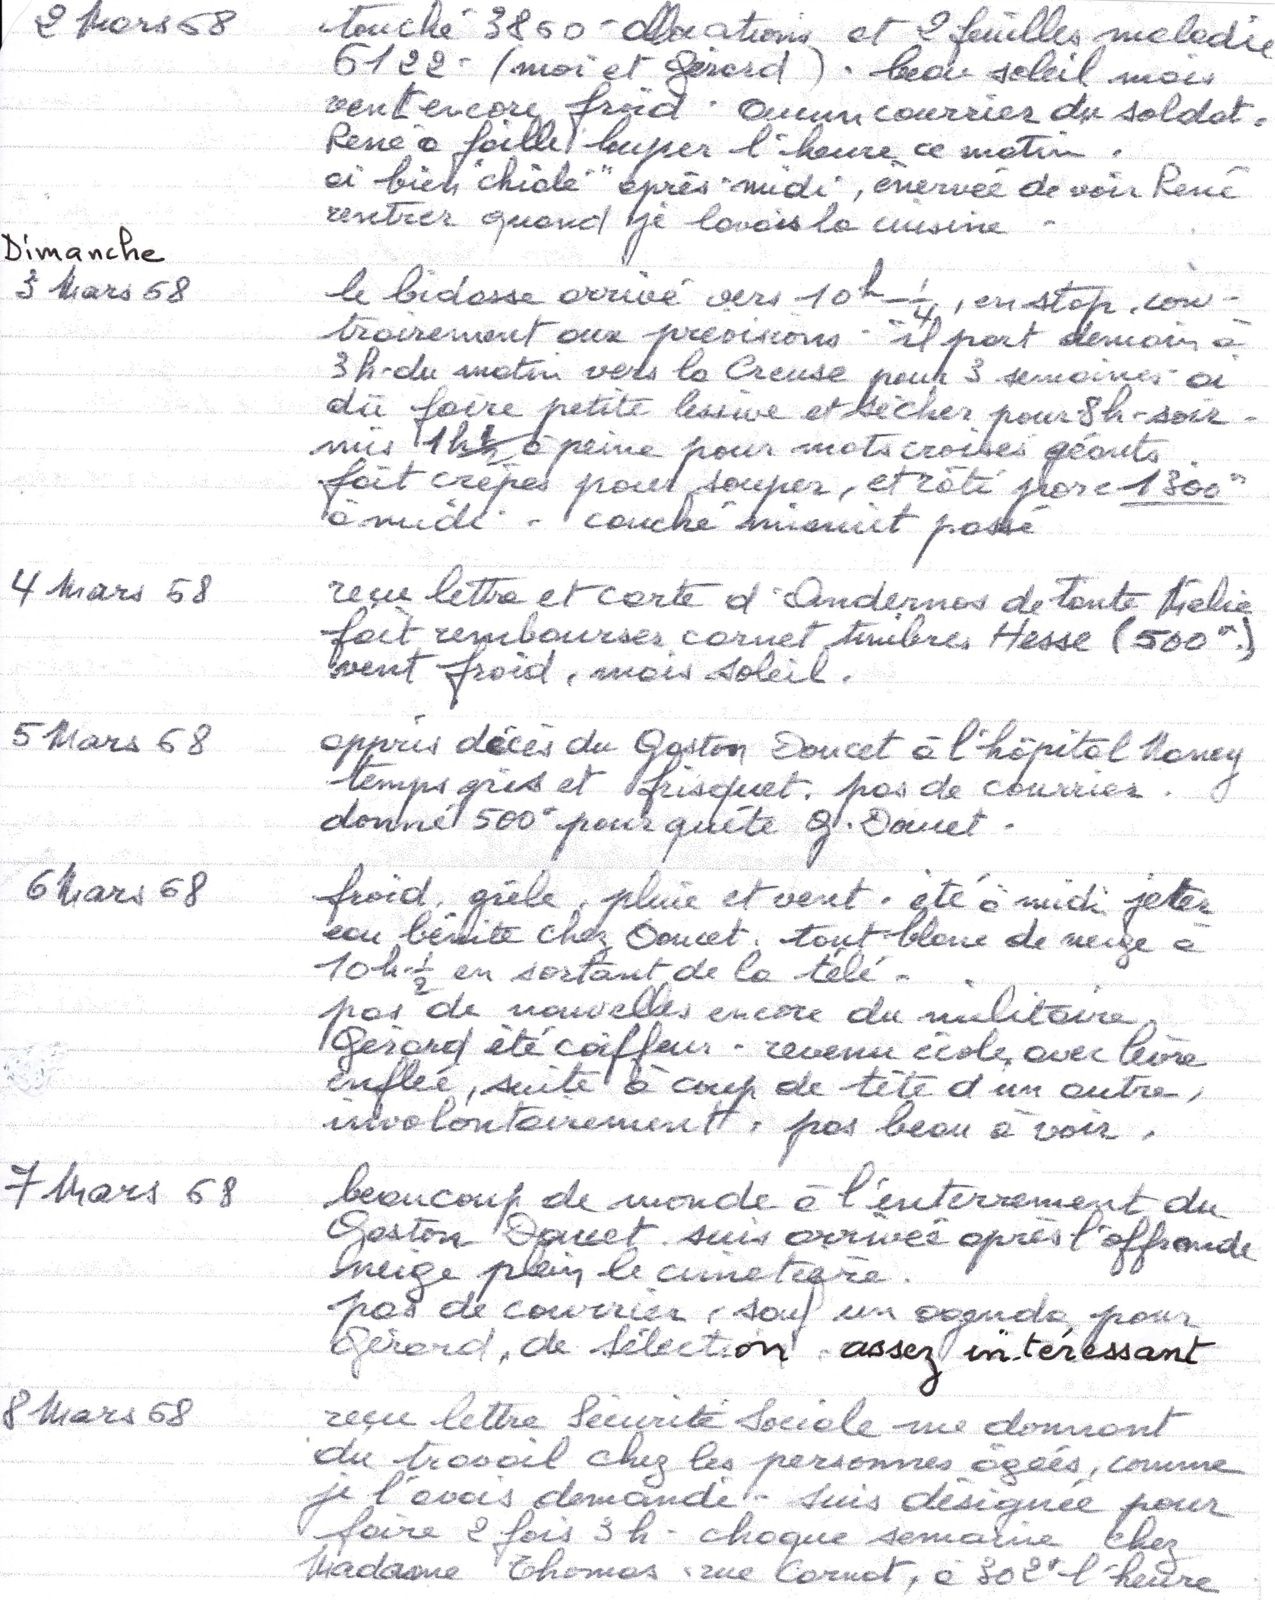 2 Mars 68 touché 3850 - allocations et 2 feuilles maladie
6122 - (moi et Gérard). beau soleil mais
vent encore froid. aucun courrier du soldat.
René a failli louper l'heure ce matin.
ai bien "chialé" après-midi, énervée de voir René
rentrer quand je lavais la cuisine -
Dimanche
3 Mars 68 le bidasse arrivé vers 10h 1/4, en stop, con-
trairement aux prévisions - il part demain à
3h du matin vers la Creuse pour 3 semaines - ai
dû faire petite lessive et sécher pour 8h - soir -
mis 1h 1/2 à peine pour mots croisés géants
fait crêpes pour souper, et rôti porc 1300"
à midi - couché minuit passé
4 Mars 68 reçu lettre et carte d'Andernos de Tante Mélie
fait rembourser carnet timbres Hesse (500")
vent froid, mais soleil.
5 Mars 68 appris décès du Gaston Doucet à l'hôpital Nancy
temps gris et frisquet. pas de courrier.
donné 500" pour quête G. Doucet.
6 Mars 68 froid, grêle, pluie et vent. été à midi jeter
eau bénite chez Doucet. tout blanc de neige à
10h 1/2 en sortant de la télé -
pas de nouvelles encore du militaire.
Gérard été coiffeur - revenu école, avec lèvre
enflée, suite à coup de tête d'un autre,
involontairement. pas beau à voir.
7 Mars 68 beaucoup de monde à l'enterrement du
Gaston Doucet. suis arrivée après l'offrande
neige plein le cimetière.
pas de courrier, sauf un agenda pour
Gérard, de Sélection. assez intéressant
8 Mars 68 reçu lettre Sécurité Sociale me donnant
du travail chez les personnes âgées, comme
je l'avais demandé - suis désignée pour
faire 2 fois 3h - chaque semaine chez
Madame Thomas, rue Carnot, à 302" l'heure